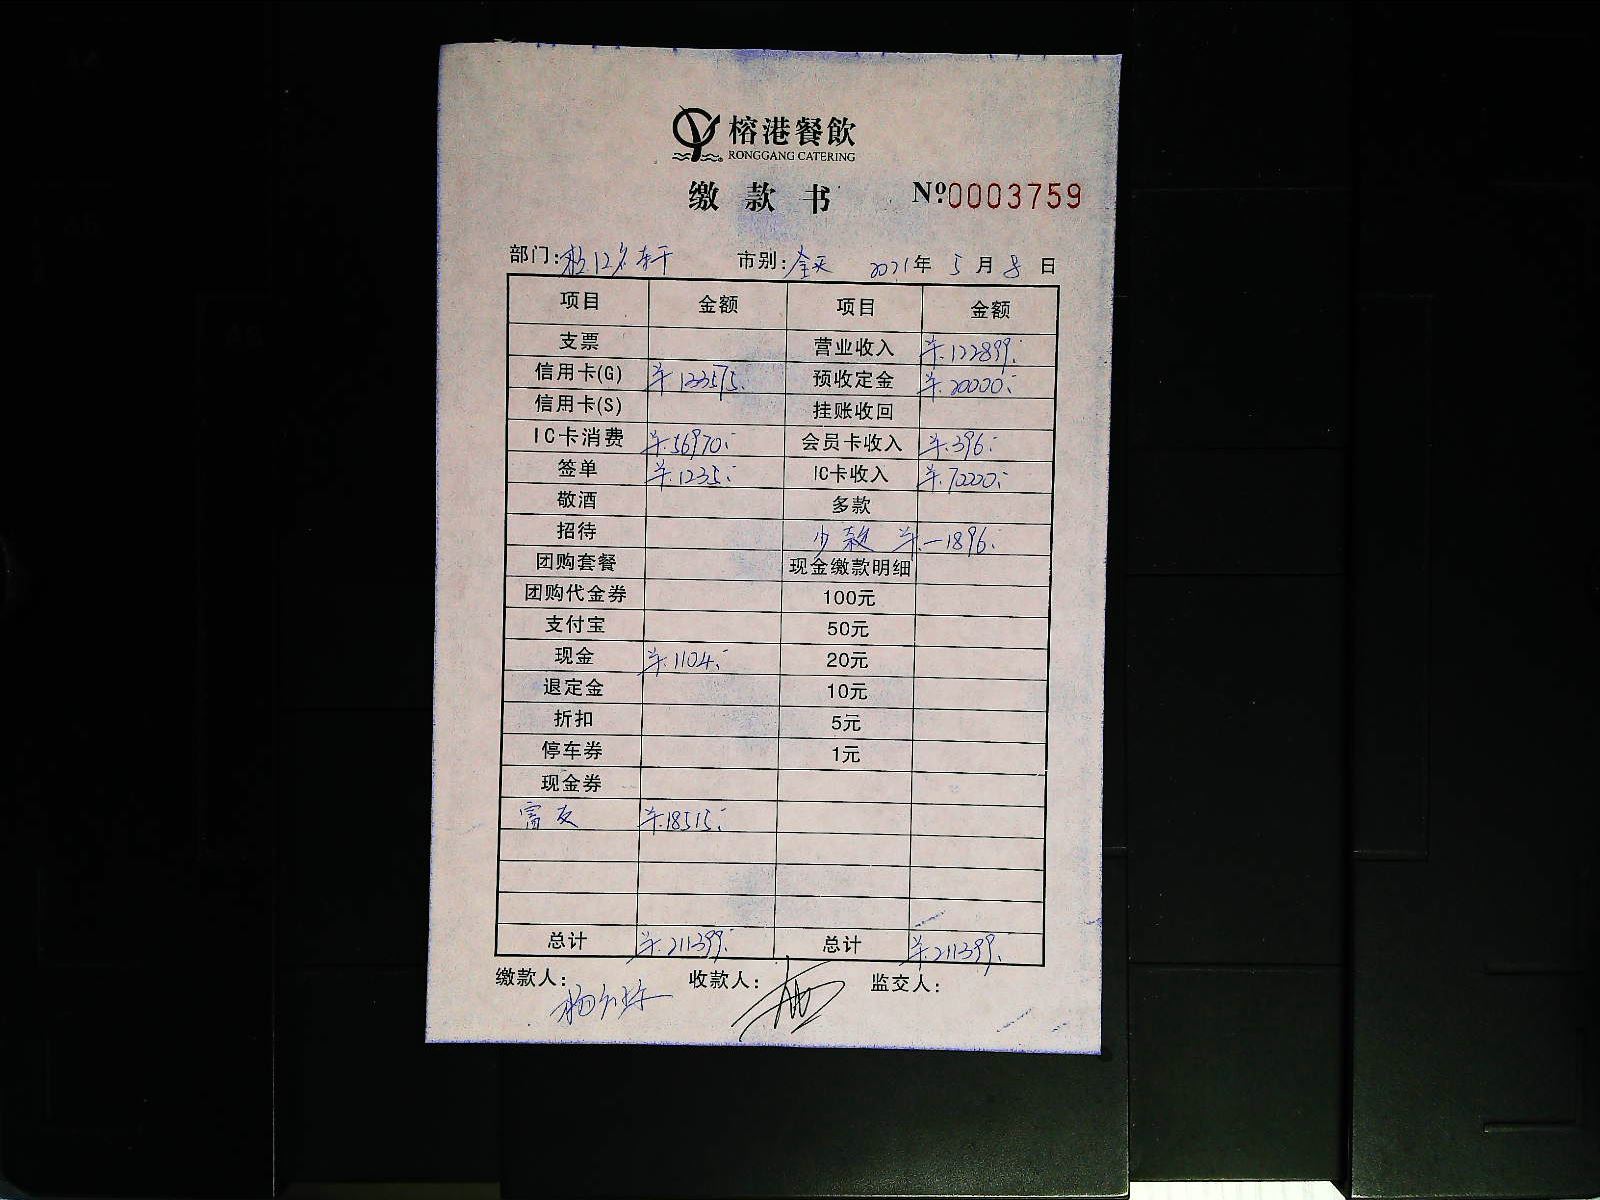 榕港餐飲
RONGGANG CATERING
缴款书 Nº:0003759
部门: 市别:全天 2021年 5月 8日
项目 金额 项目 金额
支票 营业收入 ¥.122899.-
信用卡(G) ¥133575.- 预收定金 ¥.20000.-
信用卡(S) 挂账收回
IC卡消费 ¥.56970.- 会员卡收入 ¥.396.-
签单 ¥.1235.- IC卡收入 ¥.70000.-
敬酒 多款
招待 少款 ¥.-1896.-
团购套餐 现金缴款明细
团购代金券 100元
支付宝 50元
现金 ¥.1104.- 20元
退定金 10元
折扣 5元
停车券 1元
现金券
富友 ¥.18515.-
总计 ¥.211399.- 总计 ¥.211399.-
缴款人: 收款人: 监交人: